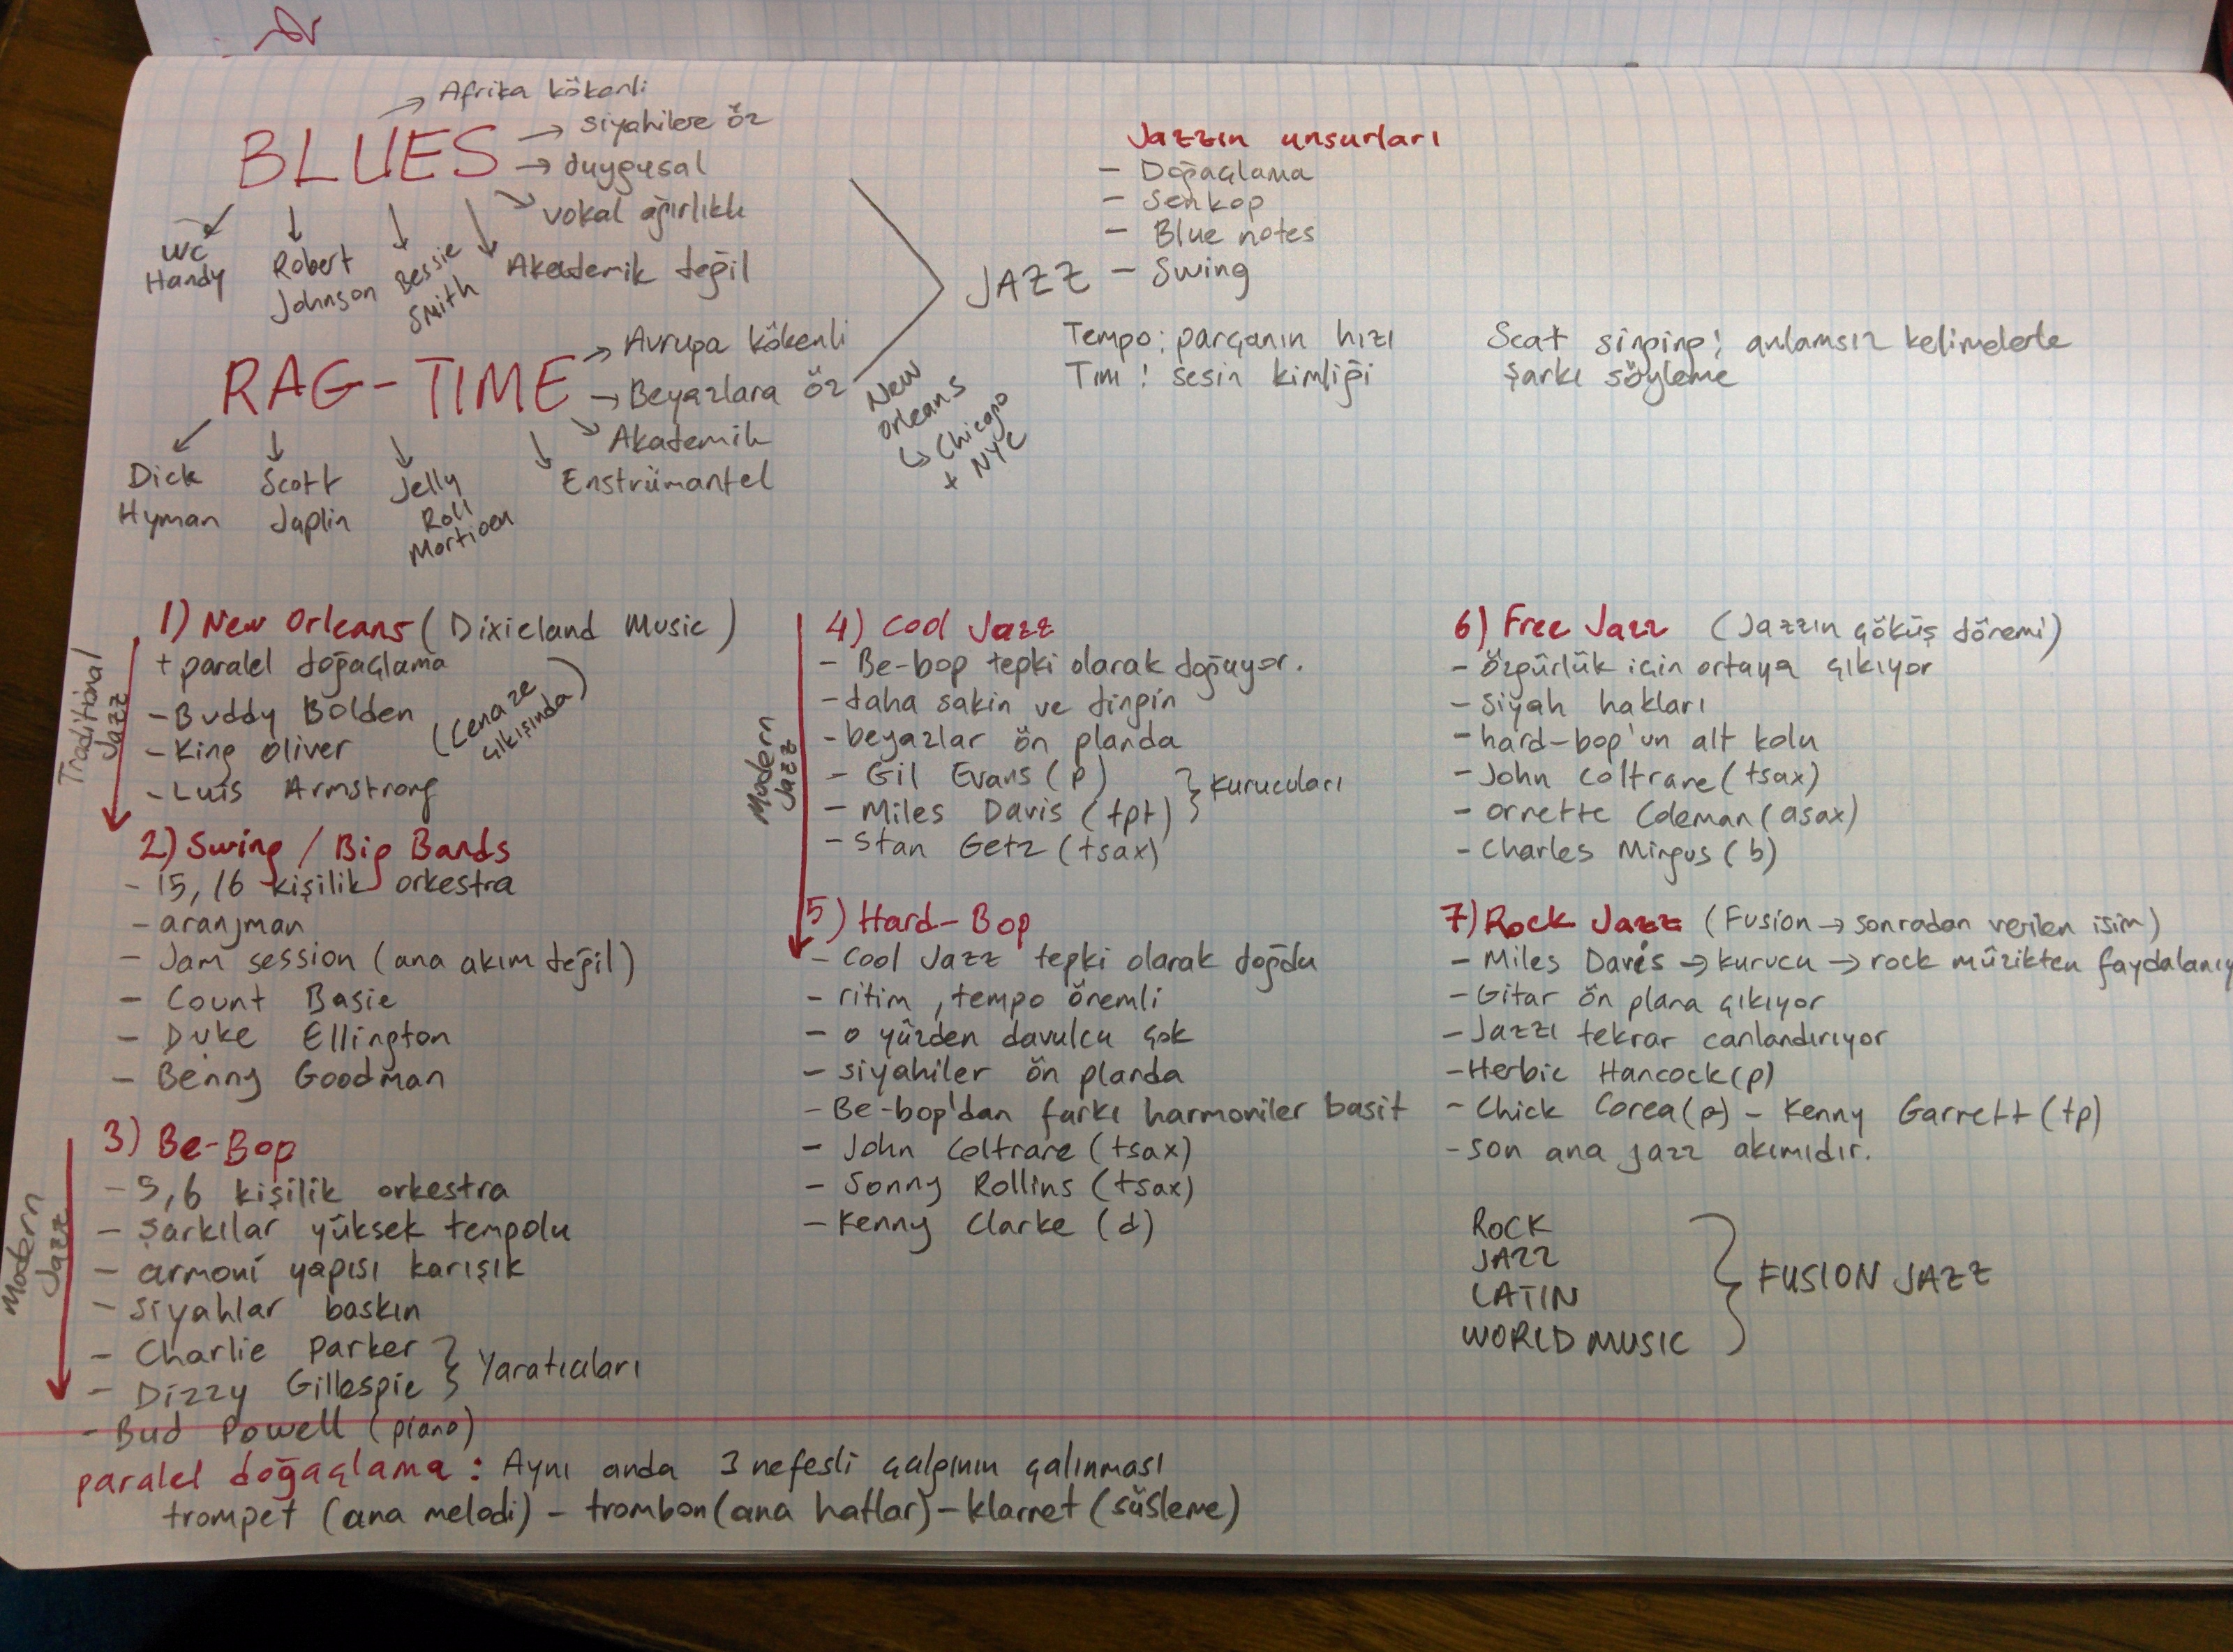 BLUES
→ Afrika kökenli
→ siyahilere öz
→ duygusal
vokal ağırlıklı
Akademik değil
WC
Handy
Robert
Johnson
Bessie
Smith
RAG-TIME
→ Avrupa kökenli
→ Beyazlara öz
Akademik
Enstrümantel
Dick
Hyman
Scott
Joplin
Jelly
Roll
JAZZ
New
Orleans
↳ Chicago
+ NYC
Jazzın unsurları
- Doğaçlama
- Senkop
- Blue notes
- Swing
Tempo: parçanın hızı
Tını: sesin kimliği
Scat singing: anlamsız kelimelerle
şarkı söyleme
Traditional
Jazz
1) New Orleans (Dixieland Music)
+ paralel doğaçlama
- Buddy Bolden
- King Oliver
- Luis Armstrong
(Cenaze
çıkışında)
2) Swing / Big Bands
- 15, 16 kişilik orkestra
- aranjman
- Jam session (ana akım değil)
- Count Basie
- Duke Ellington
- Benny Goodman
Modern
Jazz
3) Be-Bop
- 5,6 kişilik orkestra
- şarkılar yüksek tempolu
- armoni yapısı karışık
- siyahlar baskın
- Charlie Parker
- Dizzy Gillespie
} Yaratıcıları
- Bud Powell (piano)
paralel doğaçlama: Aynı anda 3 nefesli çalgının çalınması
trompet (ana melodi) - trombon (ana hatlar) - klarnet (süsleme)
Modern
Jazz
4) Cool Jazz
- Be-bop tepki olarak doğuyor.
- daha sakin ve dingin
- beyazlar ön planda
- Gil Evans (p)
- Miles Davis (tpt)
} kurucuları
- Stan Getz (tsax)
5) Hard-Bop
- Cool Jazz tepki olarak doğdu
- ritim, tempo önemli
- o yüzden davulcu çok
- siyahiler ön planda
- Be-bop'dan farkı harmoniler basit
- John Coltrane (tsax)
- Sonny Rollins (tsax)
- Kenny Clarke (d)
6) Free Jazz (Jazzın çöküş dönemi)
- özgürlük için ortaya çıkıyor
- siyah hakları
- hard-bop'un alt kolu
- John Coltrane (tsax)
- Ornette Coleman (asax)
- Charles Mingus (b)
7) Rock Jazz (Fusion → sonradan verilen isim)
- Miles Davis → kurucu → rock müzikten faydalanıy
- Gitar ön plana çıkıyor
- Jazzı tekrar canlandırıyor
- Herbie Hancock (p)
- Chick Corea (p) - Kenny Garrett (tp)
- son ana jazz akımıdır.
ROCK
JAZZ
LATIN
WORLD MUSIC
} FUSION JAZZ